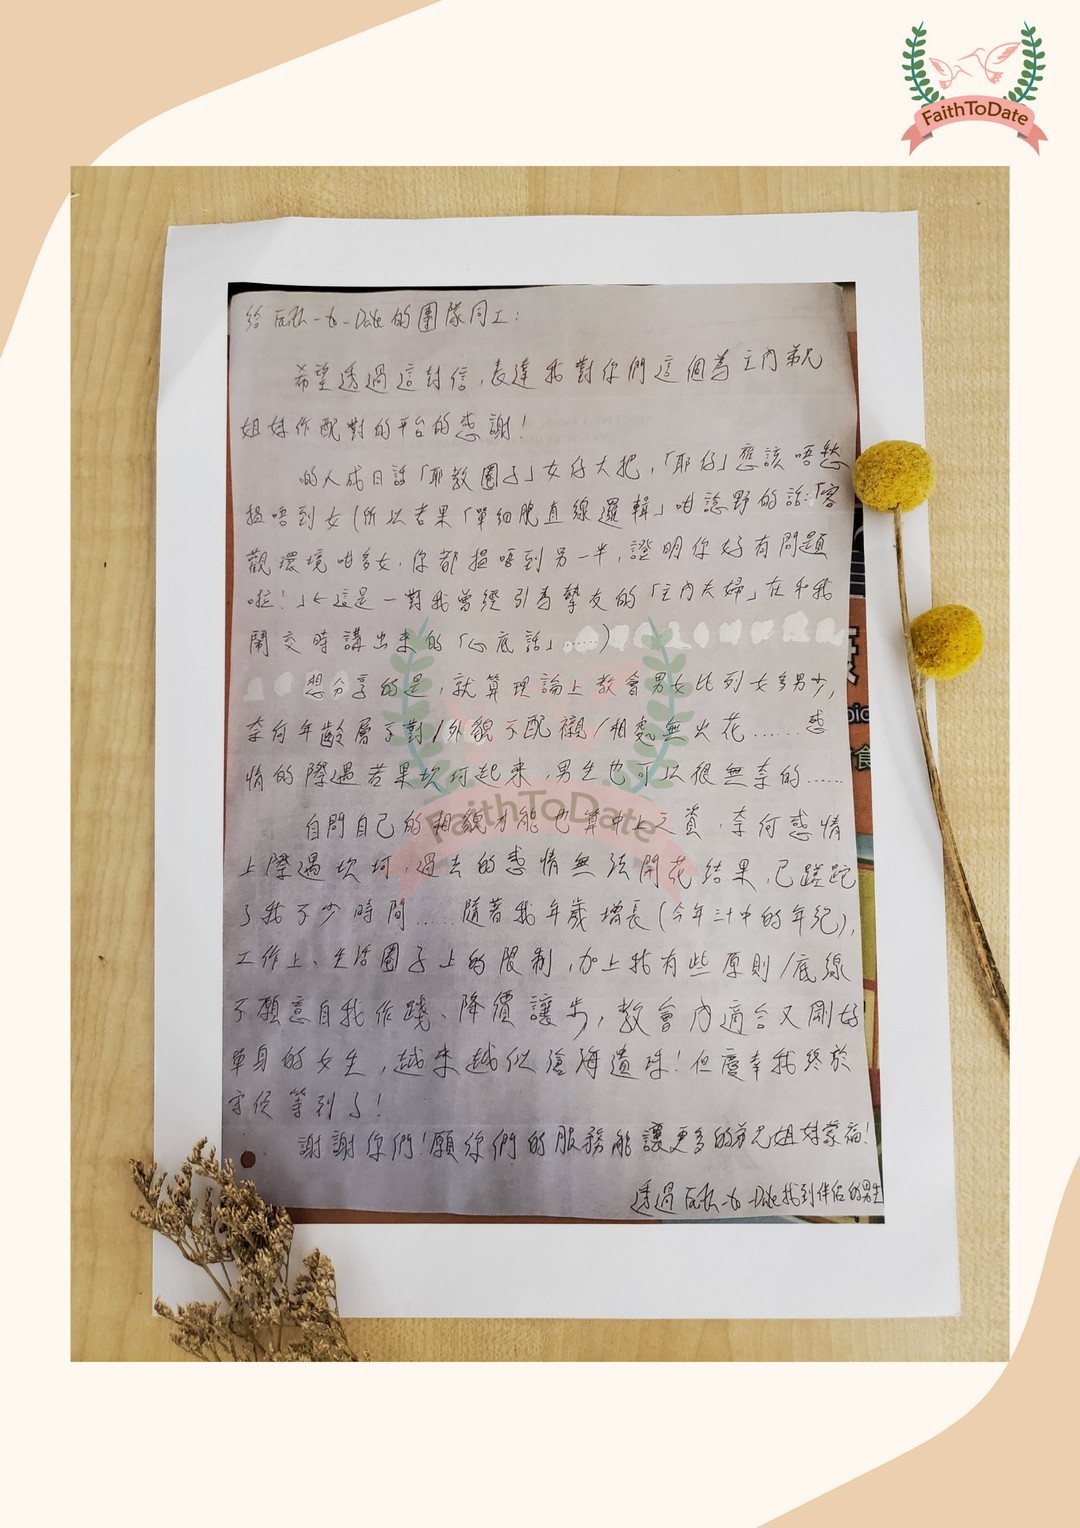 FaithToDate
給Faith-to-Date的團隊同工：
希望透過這封信，表達我對你們這個為主內弟兄
姐妹作配對的平台的感謝！
的人成日話「耶教圈子」女仔大把，「耶仔」應該唔愁
搵唔到女（所以若果「單細胞直線邏輯」咁諗野的話：「客
觀環境咁多女，你都搵唔到另一半，證明你好有問題
啦！」←這是一對我曾經引為摯友的「主內夫婦」在和我
鬧交時講出來的「心底話」……）
想分享的是，就算理論上教會男女比列女多男少，
奈何年齡層不對/外貌不配襯/相處無火花……感
情的際遇若果坎坷起來，男生也可以很無奈的……
FaithToDate
自問自己的相貌才能也算中上之資，奈何感情
上際遇坎坷，過去的感情無法開花結果，已蹉跎
了我不少時間……隨著我年歲增長（今年三十中的年紀），
工作上、生活圈子上的限制，加上我有些原則/底線
不願意自我作踐、降價讓步，教會內適合又剛好
單身的女生，越來越似滄海遺珠！但慶幸我終於
守候等到了！
謝謝你們！願你們的服務能讓更多的弟兄姐妹蒙福！
透過Faith-to-Date找到伴侶的男生